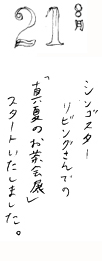 8月
21
シンゴスター
リビングさんでの
「真夏のお茶会展」
スタートいたしました。